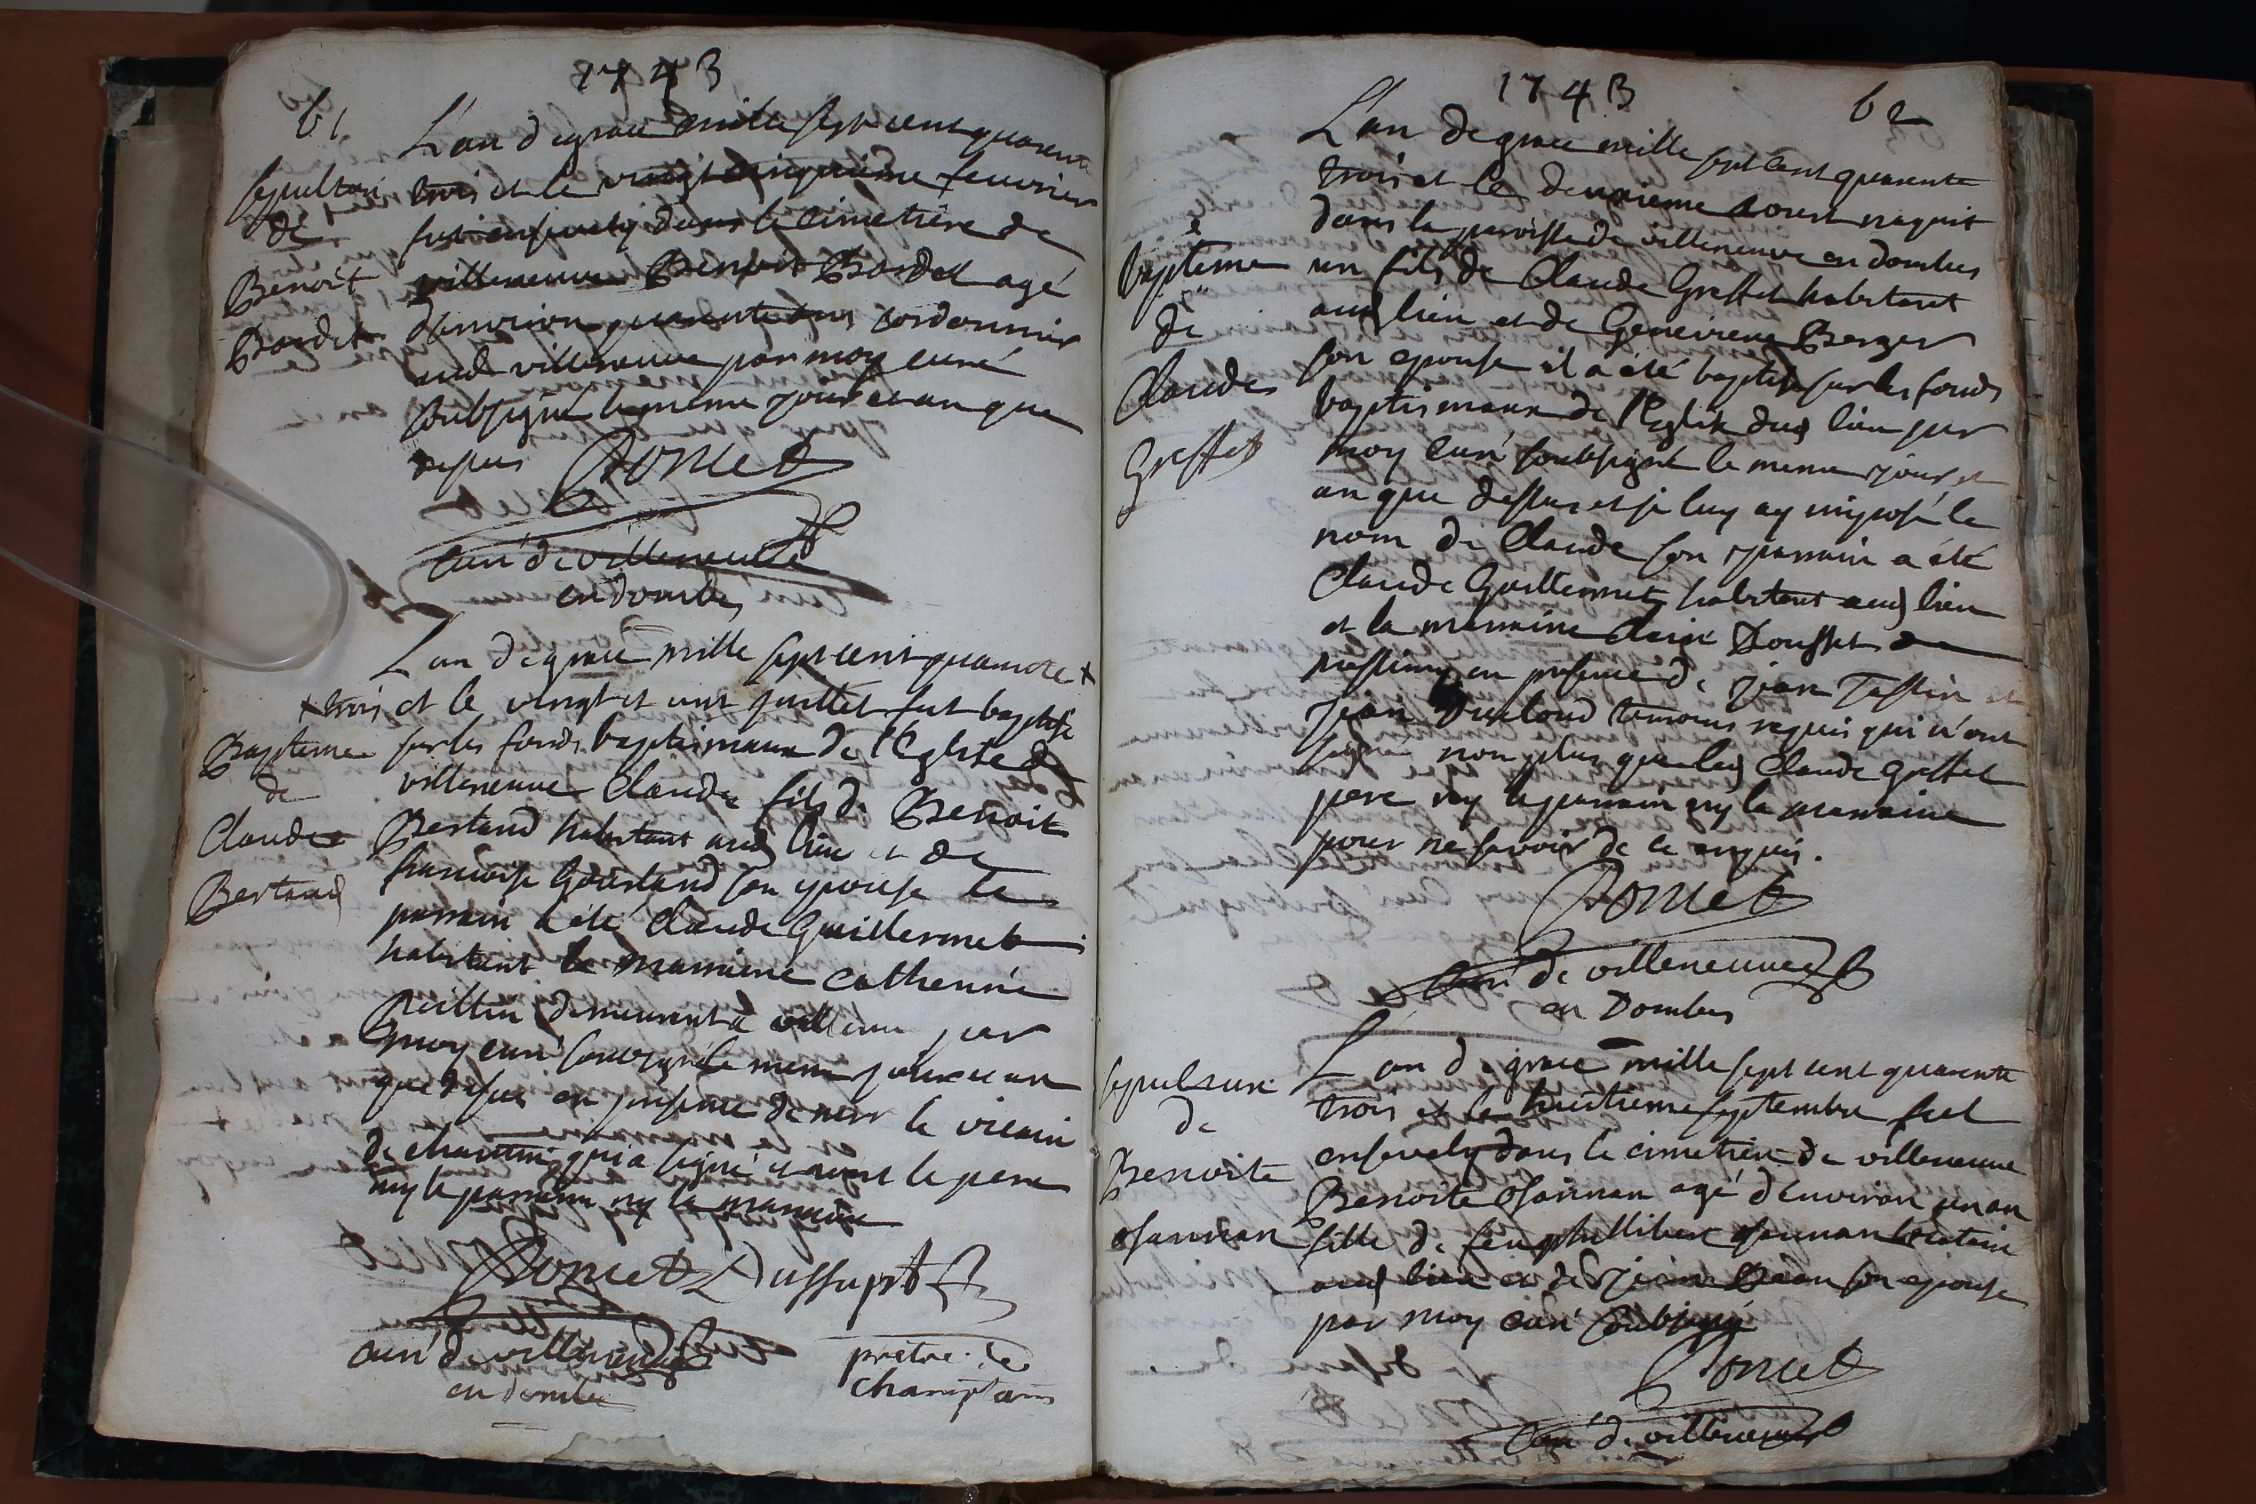 1743
61
L'an de grace mille sept cent quarente
trois et le vingt cinquieme feuvrier
fut ensevely dans le cimetiere de
villeneuve Benoit Bordet agé
d'environ quarente ans cordonnier
aud villeneuve par moy curé
soubsigné le meme jour et an que
dessus Poncet
curé de villeneuve
en dombes
sepulture
de
Benoit
Bordet
L'an de grace mille sept cent quarante +
+ trois et le vingt et un juillet fut baptisé
sur les fonds baptismaux de l'Eglise de
villeneuve Claude fils de Benoit
Bertaud habitant aud lieu et de
francoise Gourland son epouse le
parrain a été Claude Guillermet
habitant la marraine catherine
demeurant a par
moy curé soubsigné le meme jour et an
que dessus en presence de mesr le vicaire
de qui a signé et non le pere
ny le parrain ny la marraine
Poncet Dussupt
curé de villeneuve prêtre de
en dombes champ
Bapteme
de
Claude
Bertaud
1743
62
L'an de grace mille sept cent quarente
trois et le deuxieme aoust naquit
dans la paroisse de villeneuve en dombes
un fils de Claude Greffet habitant
aud lieu et de Genevieve Berger
son epouse il a été baptisé sur les fonds
baptismaux de l'Eglise dud lieu par
moy curé soubsigné le meme jour et
an que dessus et je luy ay imposé le
nom de Claude son parrain a été
Claude Guillermet habitant aud lieu
et la marraine Dousset de
en presence de jean Tassin et
jean temoins requis qui n'ont
signé non plus que led Claude Greffet
pere ny le parrain ny la marraine
pour ne savoir de ce enquis.
Poncet
curé de villeneuve
en Dombes
bapteme
de
Claude
Greffet
L'an de grace mille sept cent quarente
trois et le huitieme septembre fut
ensevely dans le cimetiere de villeneuve
Benoite Osannan agé d'environ un an
fille de feu phillibert Osannan
aud lieu et de son epouse
par moy curé soubsigné
Poncet
curé de villeneuve
sepulture
de
Benoite
Osannan